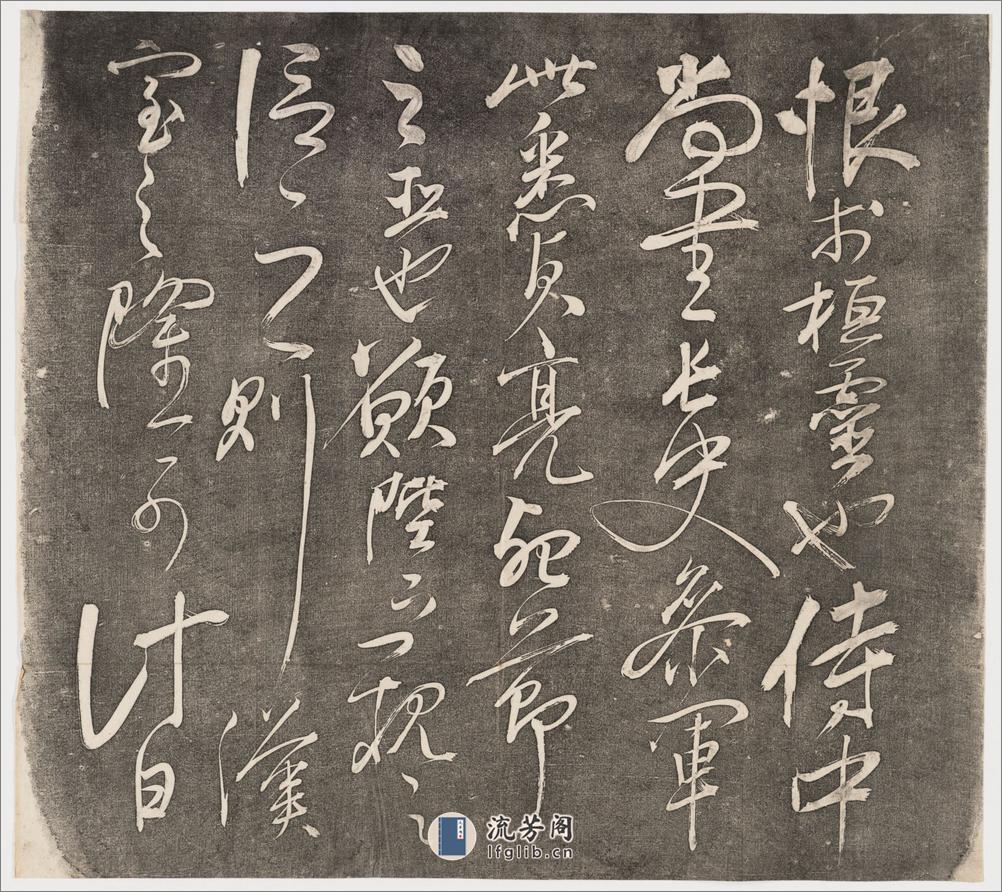 恨於桓靈也侍中
尚書長史叅軍
此悉貞亮死節
之臣也願陛下親之
信之則漢
室之隆可計日
流芳阁
lfglib.cn